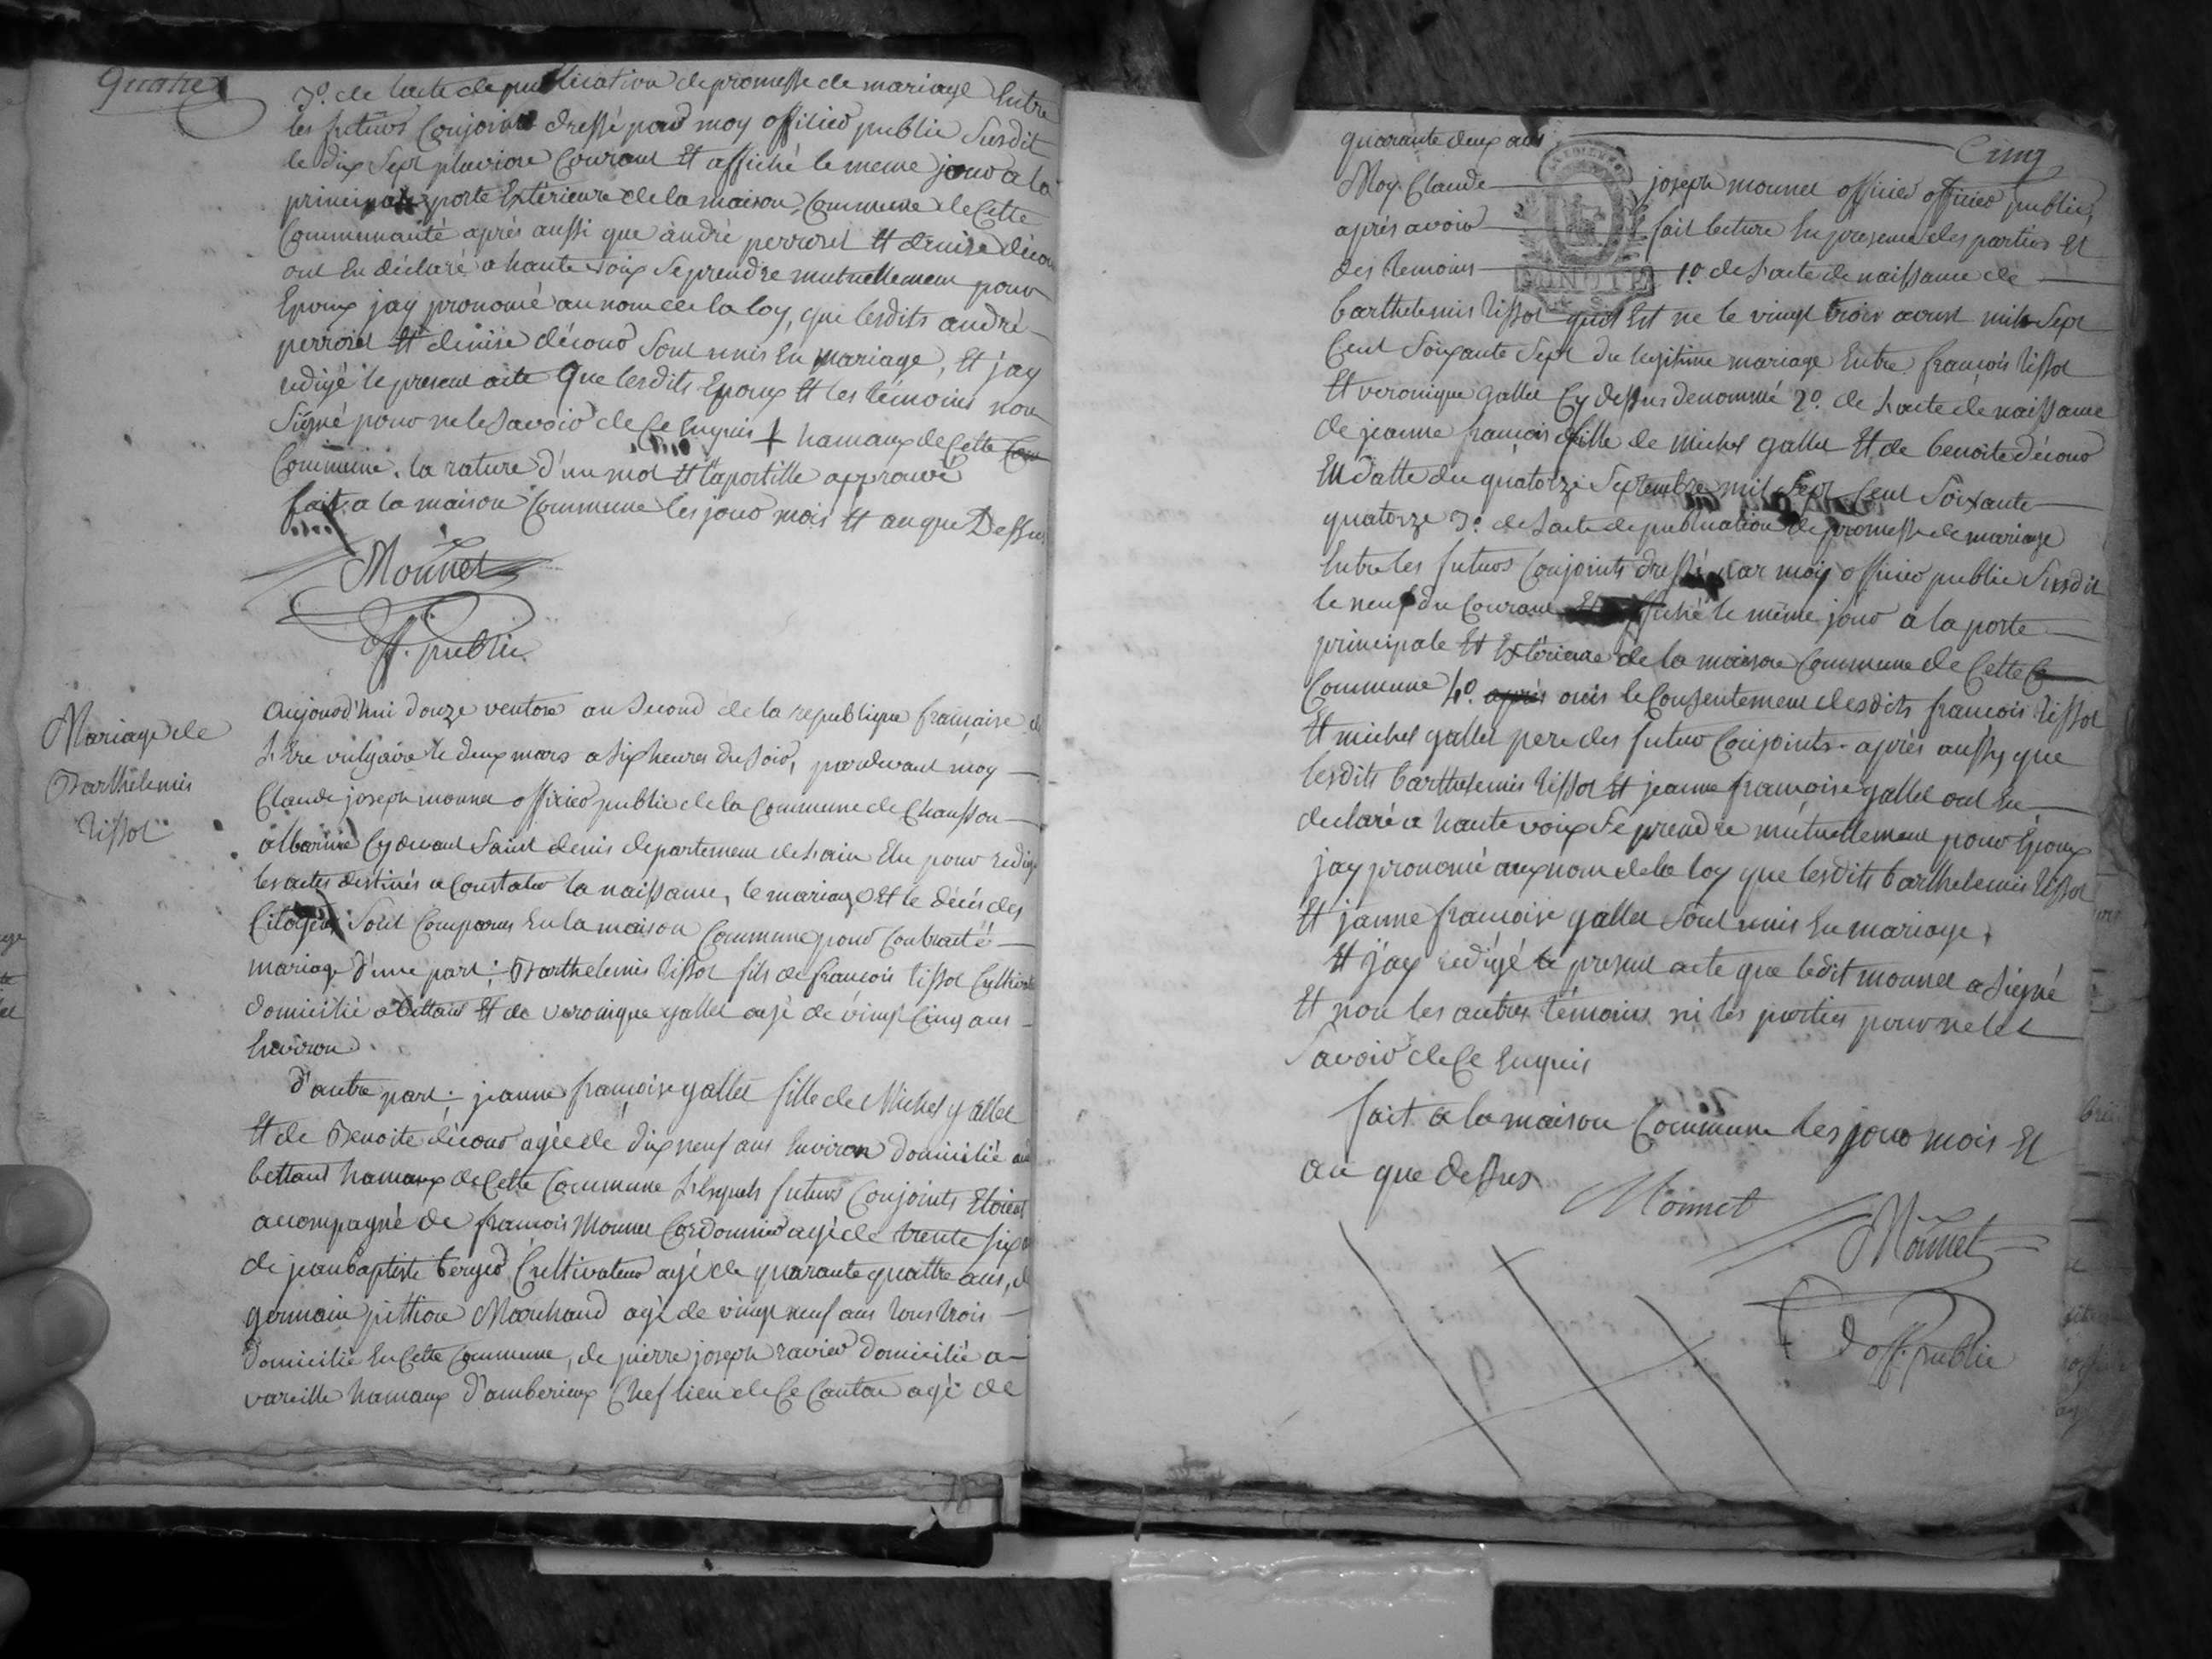 Quatre
3º. de lacte de publication de promesse de mariage Entre
les futurs Conjoints dressé par moy officier public Susdit
le dix Sept pluviose Courant Et affiché le meme jour a la
principale porte Extérieure de la maison Commune de Cette
Communauté après aussi que andré perroset Et denise décour
ont Eu déclaré a haute voix Se prendre mutuellement pour
Epoux jay prononcé au nom de la loy, que lesdits andré
perroset Et denise décour Sont unis En mariage, Et jay
rédigé le present acte Que lesdits Epoux Et les témoins non
Signé pour ne le Savoir de Ce Enquis ⸸ hamaux de Cette Com
Commune. la rature d'un mot Et l'apostille approuvé
fait a la maison Commune les jour mois Et an que Dessus
Monnet
Off. public
Mariage de
Barthelemis
tissot
Aujourd'hui douze ventose an Second de la republique francaise de
L'Ere vulgaire le deux mars a Six heures du Soir, pardevant moy
Claude joseph monnet officier public de la Commune de Chausson
albarine Cy devant Saint denis departement de Lain Elu pour redige
les actes destinés a Constater la naissance, le mariage Et le décés des
Citoyens Sont Comparus En la maison Commune pour Contracter
mariage d'une part; Barthelemis tissot fils de francois tissot Cultivate
domicilié a Bettant Et de veronique gallet agé de vingt Cinq ans
Environ.
d'autre part; jeanne francoise gallet fille de Michel gallet
Et de Benoite décour agée de dix neuf ans Environ domicilié aud
bettant hamaux de Cette Commune Lesquels futurs Conjoints Etoient
accompagné de francois Monnet Cordonnier agé de trente six
de jean baptiste berger Cultivateur agé de quarante quattre ans, d
germain pittion Marchand agé de vingt neuf ans tous trois
domicilié En Cette Commune, de pierre joseph ravier domicilié a
vareille hamaux d'amberieux Chef lieu de Ce Canton agé de
quarante deux ans
Cinq
Moy Claude joseph monnet officier officier public,
après avoir fait lecture En presence des parties Et
des temoins 1º. de Lacte de naissance de
barthelemis tissot quil Est ne le vingt trois avril mil Sept
Cent Soixante Sept du legitime mariage Entre francois tissot
Et veronique gallet Cy dessus denommé 2º. de Lacte de naissance
de jeanne francois fille de michel gallet Et de benoite décour
En datte du quatorze Septembre mil Sept Cent Soixante
quatorze 3º. de Lacte de publication de promesse de mariage
Entre les futurs Conjoints dressé par moy officier public Susdit
le neuf du Courant Et affiché le même jour a la porte
principale Et Extérieure de la maison Commune de Cette Co
Commune 4º. après ouis le Consentement desdits francois tissot
Et michel gallet pere des futur Conjoints. après aussy que
lesdits barthelemis tissot Et jeanne francoise gallet ont Eu
declaré a haute voix Se prendre mutuellement pour Epoux
jay prononcé aux nom de la loy que lesdits barthelemis tissot
Et janne francoise gallet Sont unis En mariage,
Et j'ay redigé le present acte que ledit monnet a Signé
Et non les autres témoins ni les parties pour ne les
Savoir de Ce Enquis
fait a la maison Commune les jour mois Et
an que dessus
Monnet
Monnet
off. public